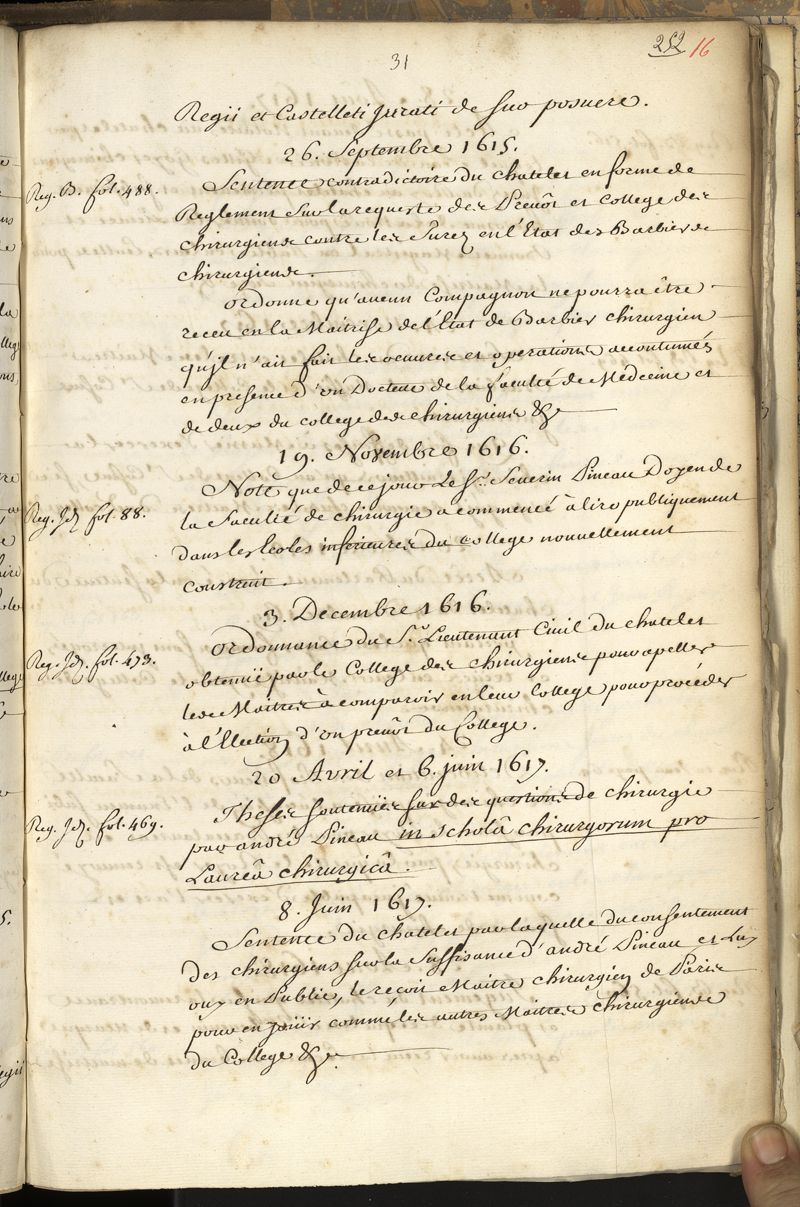 31
252 16
Regii et Castelleti Jurati de suo posuere.
26. Septembre 1615.
Reg. B. fol. 488.
Sentence contradictoire du chatelet en forme de
Reglement sur la requeste des Prevôt et College des
chirurgiens contre les Jurez en l'Etat des Barbiers
chirurgiens.
ordonne qu'aucun Compagnon ne pourra être
receu en la Maitrise de l'Etat de Barbier chirurgien
qu'jl n'ait fait les oeuvres et operations accoutumés
en presence d'un Docteur de la faculté de Médecine et
de deux du college des chirurgiens &c
19. Novembre 1616.
Reg. Jd. fol. 88.
Note que de ce jour Le Sr. Severin Pineau Doyen de
la faculté de chirurgie a commencé à lire publiquement
dans les Ecoles inferieures du college nouvellement
construit.
3. Decembre 1616.
Reg. Jd. fol. 473.
ordonnance du Sr. Lieutenant Civil du chatelet
obtenüe par le College des chirurgiens pour apeller
les Maitres à comparoir en leur College pour procéder
à l'Election d'un prevôt du College.
20 Avril et 6. juin 1617.
Reg. Jd. fol. 469.
Theses soutenües sur des questions de chirurgie
par andré Pineau in scholâ chirurgorum pro
Laureâ chirurgicâ.
8. Juin 1617.
Sentence du chatelet par laquelle du consentement
des chirurgiens sur la suffisance d'andré Pineau et Luy
ouy en Public, le reçoit Maitre chirurgien de Paris
pour en joüir comme les autres Maitres chirurgiens
du College &c.